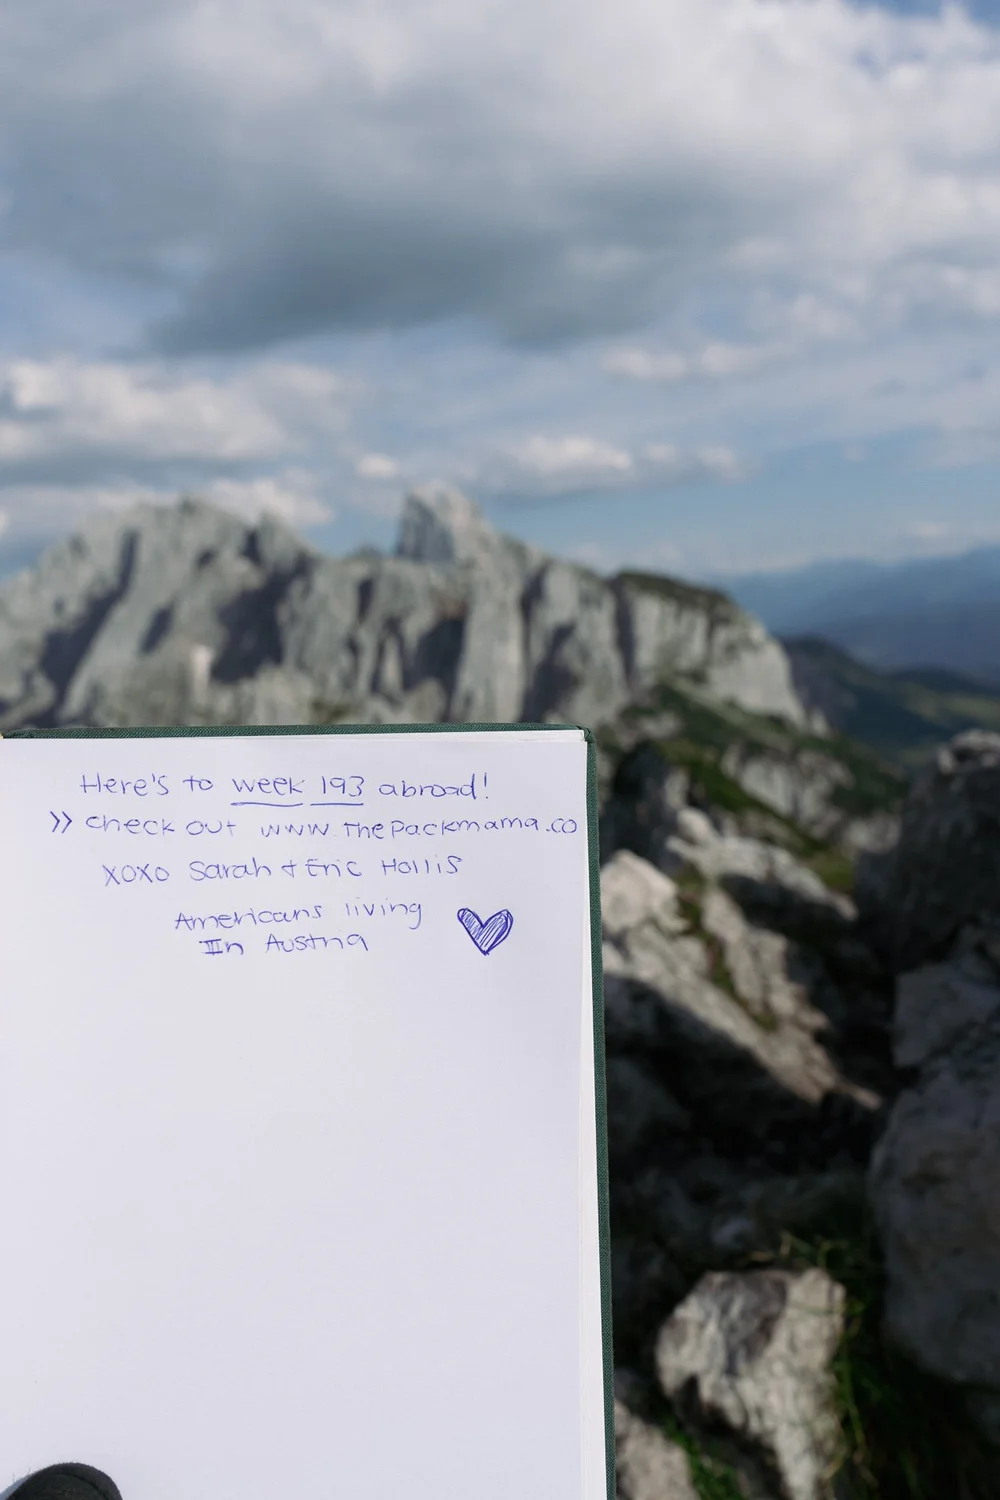 Here's to week 193 abroad!
>> check out www.thepackmama.co
xoxo Sarah + Eric Hollis
Americans living
In Austria